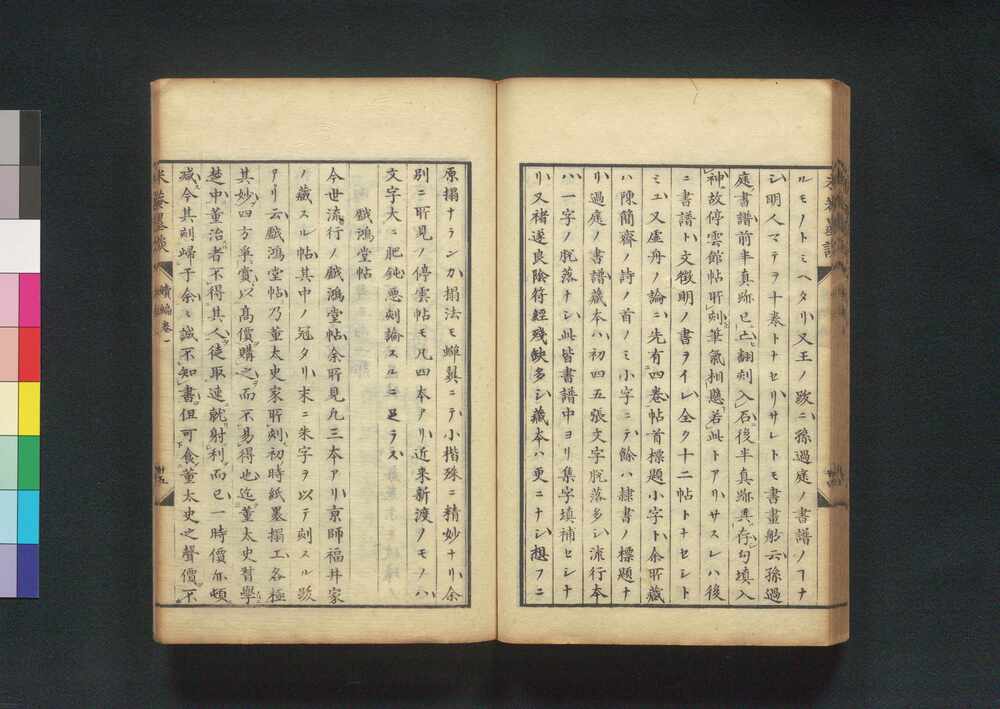 ルモノトミヘタリ又王ノ跋ニ孫過庭ノ書譜ノヿナ
シ明人マテヲ十巻トナセリサレトモ書畫舫云孫過
庭書譜前半真跡已亡翻刻入石後半真跡具存勾填入
神故停雲館帖所刻筆氣相懸若此トアリサスレハ後
ニ書譜ト文徴明ノ書ヲイレ全ク十二帖トナセシト
ミエ又虚舟ノ論ニ先有四巻帖首標題小字ト余所藏
ハ陳簡齋ノ詩ノ首ノミ小字ニテ餘ハ隷書ノ標題ナ
リ過庭ノ書譜藏本ハ初四五張文字脱落多シ流行本
ハ一字ノ脱落ナシ此皆書譜中ヨリ集字填補セシナ
リ又褚遂良陰符經殘缺多シ藏本ハ更ニナシ想フニ
原搨ナランカ搨法モ蟬翼ニテ小楷殊ニ精妙ナリ余
別ニ所見ノ停雲帖モ凡四本アリ近来新渡ノモノハ
文字大ニ肥鈍悪刻論スルニ足ラス
戯鴻堂帖
今世流行ノ戯鴻堂帖余所見凡三本アリ京師福井家
ノ藏スル帖其中ノ冠タリ末ニ朱字ヲ以テ刻スル跋
アリ云戯鴻堂帖乃董太史家所刻初時紙墨搨工各極
其妙四方爭賞以高價購之而不易得也迄董太史督學
楚中董治者不得其人徒取速就射利而已一時價亦頓
減今其刻帰于余余誠不知書但可食董太史之聲價不
續編巻一